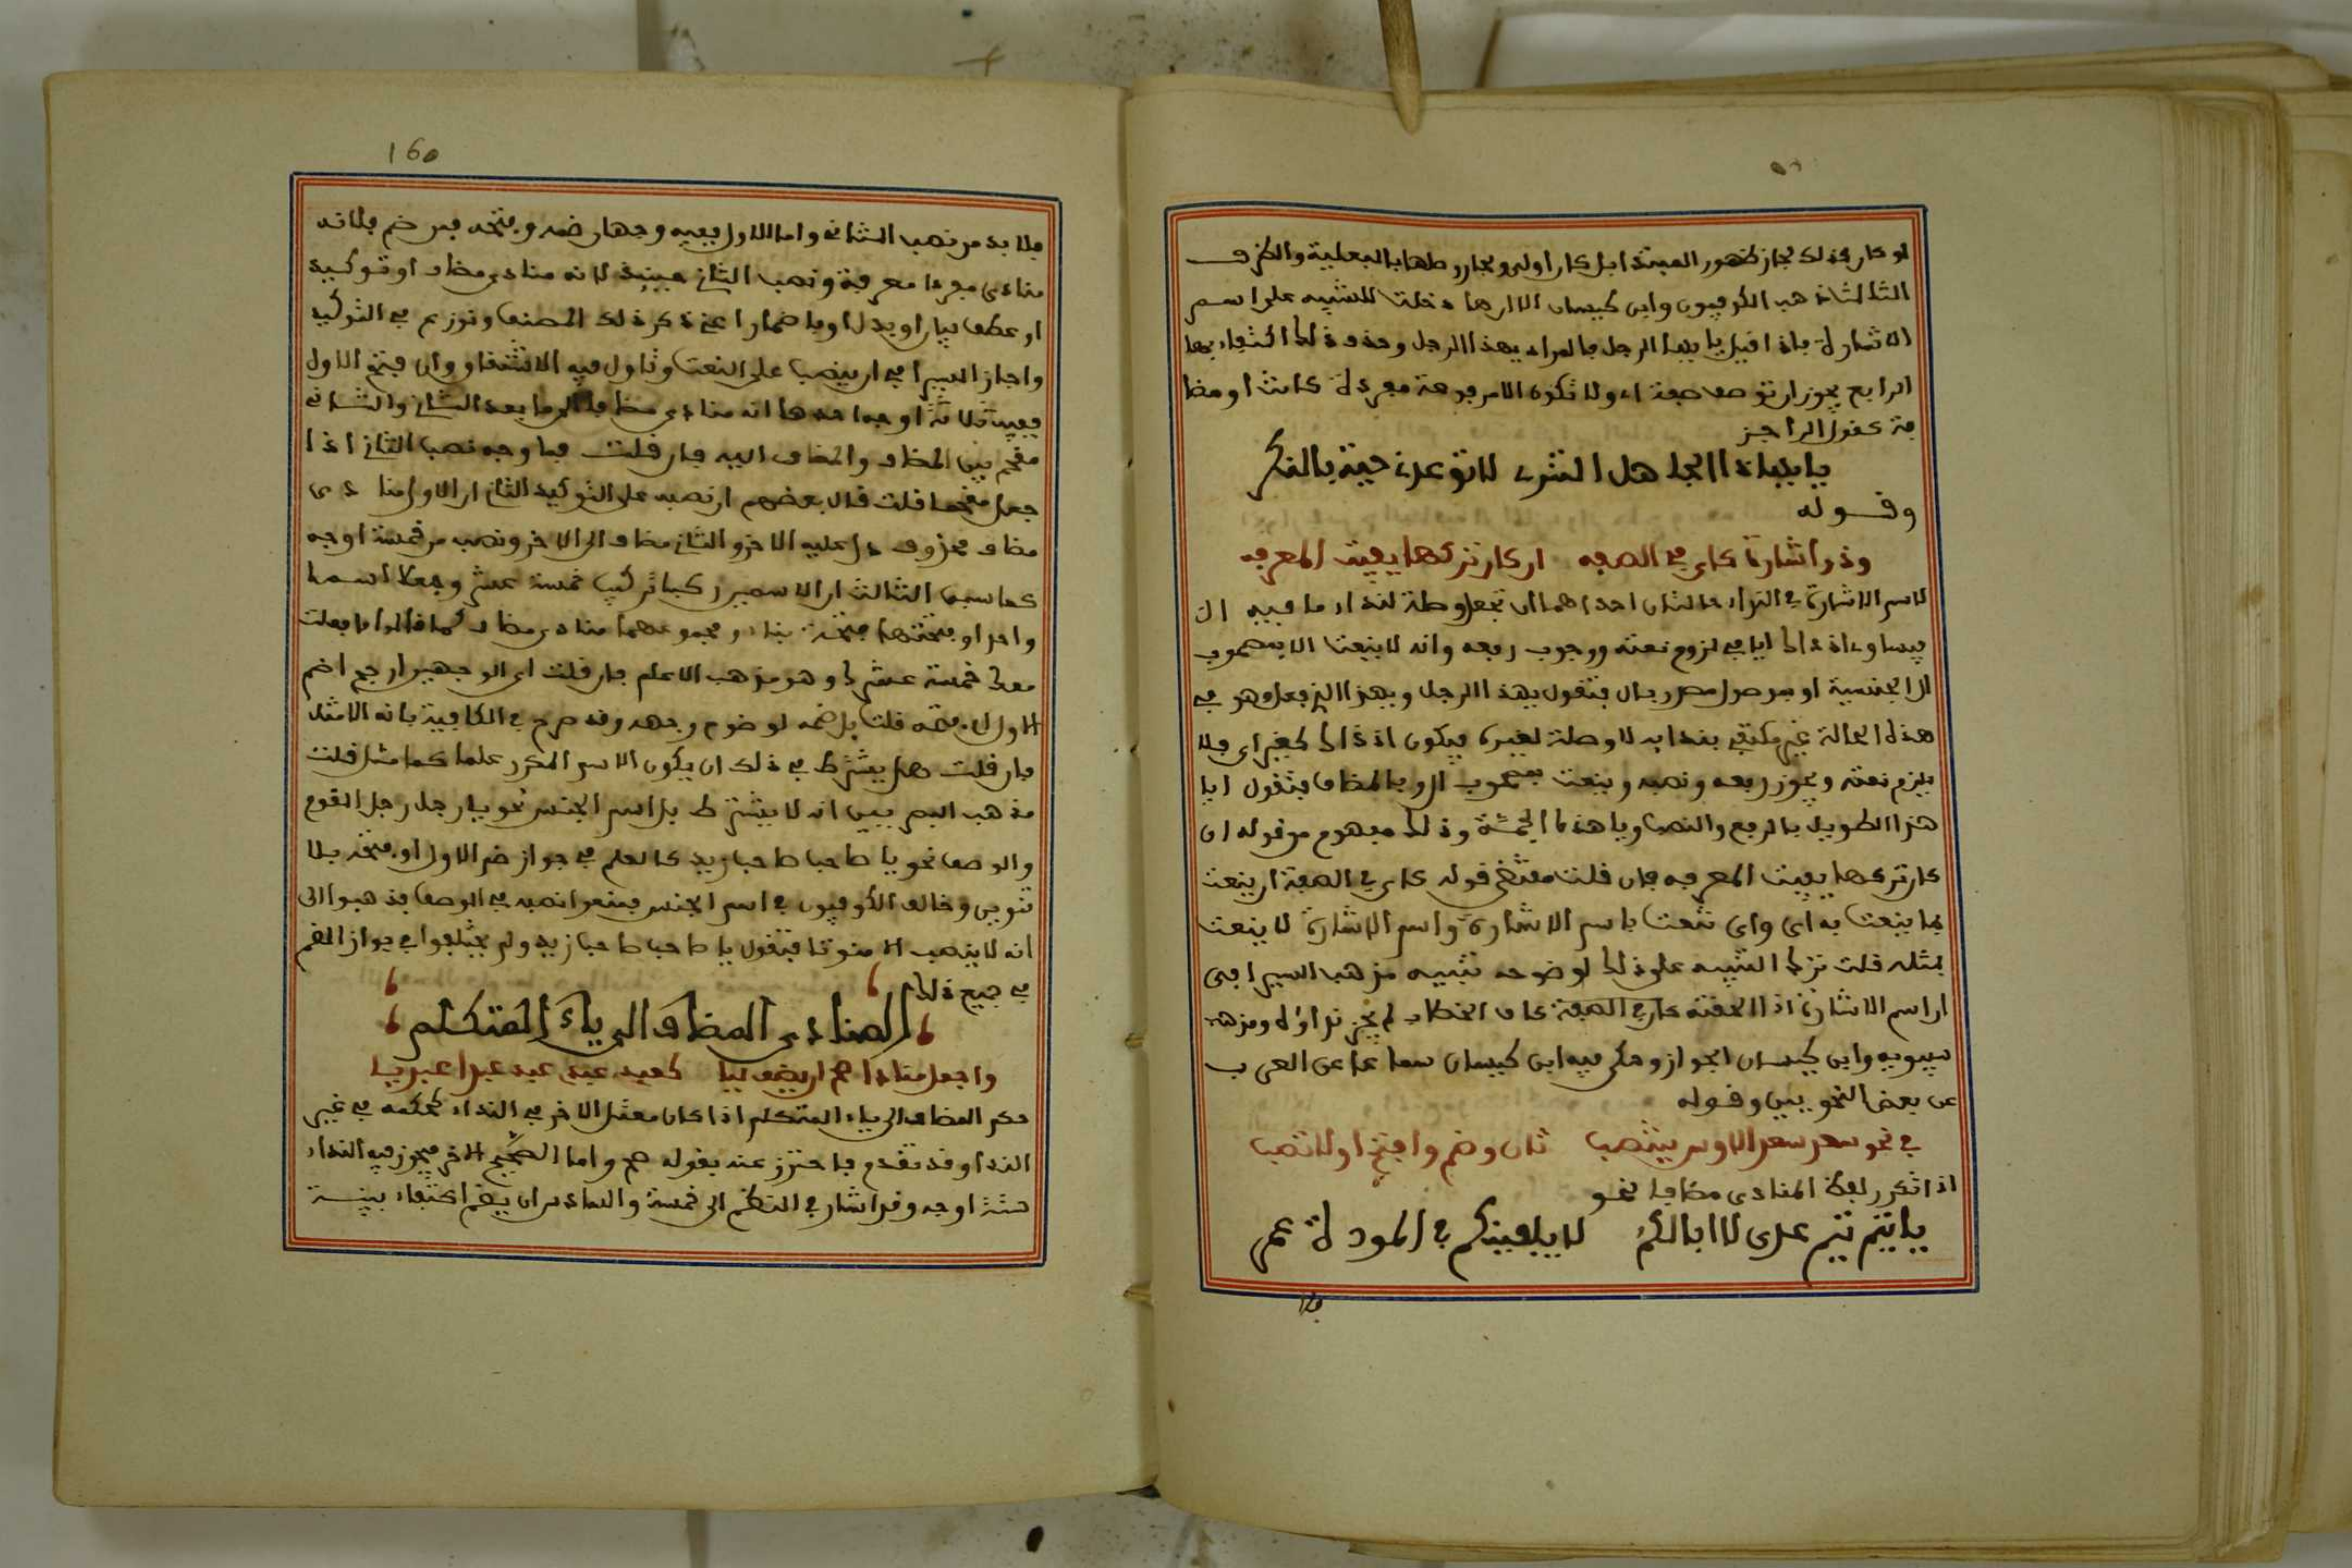 لو كان كذلك لجاز ظهور المبتدا بل كان اولى ولجاز وصلها بالبعلية والظرف
الثالث ذهب الكوفيون وابن كيسان الا ان ها دخلت للتنبيه على اسم
الاشارة فاذا قيل يا ايها الرجل فالمراد يهذا الرجل وحذف ذا اكتفاء بها
الرابع يجوز ان توصف صفة اي ولا تكون الا مرفوعة مفردة كانت او مضا
فة كقول الراجز
يا ايها الجاهل ذا التنزي لا توعدن حية بالنكز
وقوله
وذو اشارة كاي في الصفه ان كان تركها يفيت المعرفه
لاسم الاشارة في النداء حالتان احداهما ان تجعل وصلة لنداء ما فيه ال
فيساوي اذ ذاك ايا في لزوم نعته ووجوب رفعه وانه لا ينعت الا بمصحوب
ال الجنسية او موصول مصدر بال فتقول يهذا الرجل ويهذا الذي فعل وهو في
هذه الحالة غير مكتفى بندايه لا وصلة لغيره فيكون اذ ذاك كغير اي فلا
يلزم نعته ويجوز رفعه ونصبه وينعت بمصحوب ال وبالمضاف فتقول ايا
هذا الطويل بالرفع والنصب ويا هذا ذا الجمة وذلك مفهوم من قوله ان
كان تركها يفيت المعرفه فان قلت مقتضى قوله كاي في الصفة ان ينعت
بما ينعت به اي واي تنعت باسم الاشارة واسم الاشارة لا ينعت
بمثله قلت ترك التنبيه على ذلك لوضوحه تنبيه مذهب السيرافي
ان اسم الاشارة اذا الحقته كاي في الصفة كاف الخطاب لم يجز نداؤه ومذهب
سيبويه وابن كيسان الجواز وحكى فيه ابن كيسان سماعا عن العرب
عن بعض النحويين وقوله
في نحو سعد سعد الاوس ينتصب ثان وضم وافتح اولا تصب
اذا تكرر لفظ المنادى مضافا نحو
يا تيم تيم عدي لا ابا لكم لا يلفينكم في المودة عمر
فلا
160
فلا بد من نصب الثاني واما الاول ففيه وجهان ضمه وفتحه فمن ضم فلانه
منادى مفرد معرفة ونصب الثاني حينيذ لانه منادى مضاف او توكيد
او عطف بيان او بدل او باضمار اعني ذكر ذلك المصنف ونوزع في التوكيد
واجاز السيرافي ان ينصب على النعت وتاول فيه الاشتقاق وان فتح الاول
ففيه ثلاثة اوجه احدها انه منادى مضاف الى ما بعد الثاني والثاني
مقحم بين المضاف والمضاف اليه فان قلت فما وجه نصب الثاني اذا
جعل مقحما قلت قال بعضهم ان نصبه على التوكيد الثاني ان الاول منادى
مضاف محذوف دل عليه الاخر والثاني مضاف الى الاخر ونصبه من خمسة اوجه
كما سبق الثالث ان الاسمين ركبا تركيب خمسة عشر وجعلا اسما
واحدا وفتحتهما فتحة بناء ومجموعهما منادى مضاف كما قالوا ما فعلت
معك خمسة عشر ك وهو مذهب الاعلم فان قلت اي الوجهين ارجح اضم
الاول ام فتحه قلت بل ضمه لوضوح وجهه وقد صرح في الكافية بانه الامثل
فان قلت هل يشترط في ذلك ان يكون الاسم المكرر علما كما مثل قلت
مذهب البصريين انه لا يشترط بل اسم الجنس نحو يا رجل رجل القوم
والوصف نحو يا صاحب صاحب زيد كالعلم في جواز ضم الاول او فتحه بلا
تنوين وخالف الكوفيون في اسم الجنس فمنعوا نصبه وفي الوصف فذهبوا الى
انه لا ينصب الا منونا فتقول يا صاحبا صاحب زيد ولم يختلفوا في جواز الضم
في جميع ذلك
المنادى المضاف الى ياء المتكلم
واجعل منادا صح ان يضف ليا كعبد عبدي عبد عبدا عبديا
حكم المضاف الى ياء المتكلم اذا كان معتل الاخر في النداء كحكمه في غير
النداء وقد تقدم فاحترز عنه بقوله صح واما الصحيح الاخر فيجوز فيه النداء
ستة اوجه وقد اشار في النظم الى خمسة والسادس ان يضم اكتفاء بنية